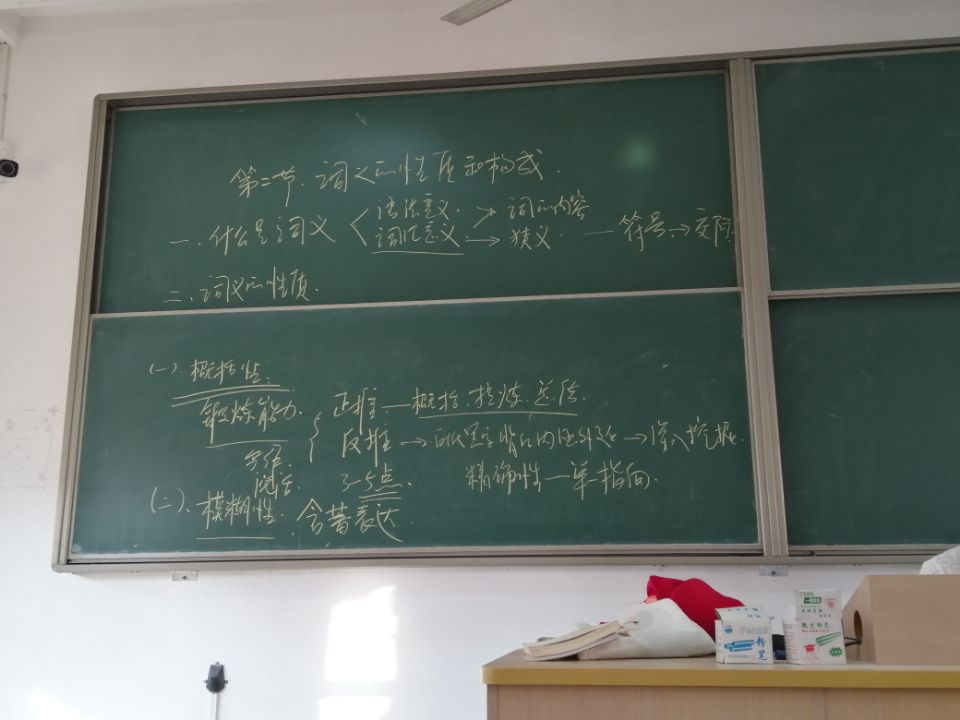 第二节、词义的性质和构成.
语法意义. → 词的内容
一、什么是词义 < 词汇意义 → 狭义. — 符号 → 交际
二、词义的性质.
(一).概括性.
锻炼能力. { 正推 — 概括.提炼.总结.
反推 → 白纸黑字背后内涵外延 → 深入挖掘.
写话.
说话. 3-5点. 精确性 — 单一指向.
(二)、模糊性. 含蓄表达.
粉笔